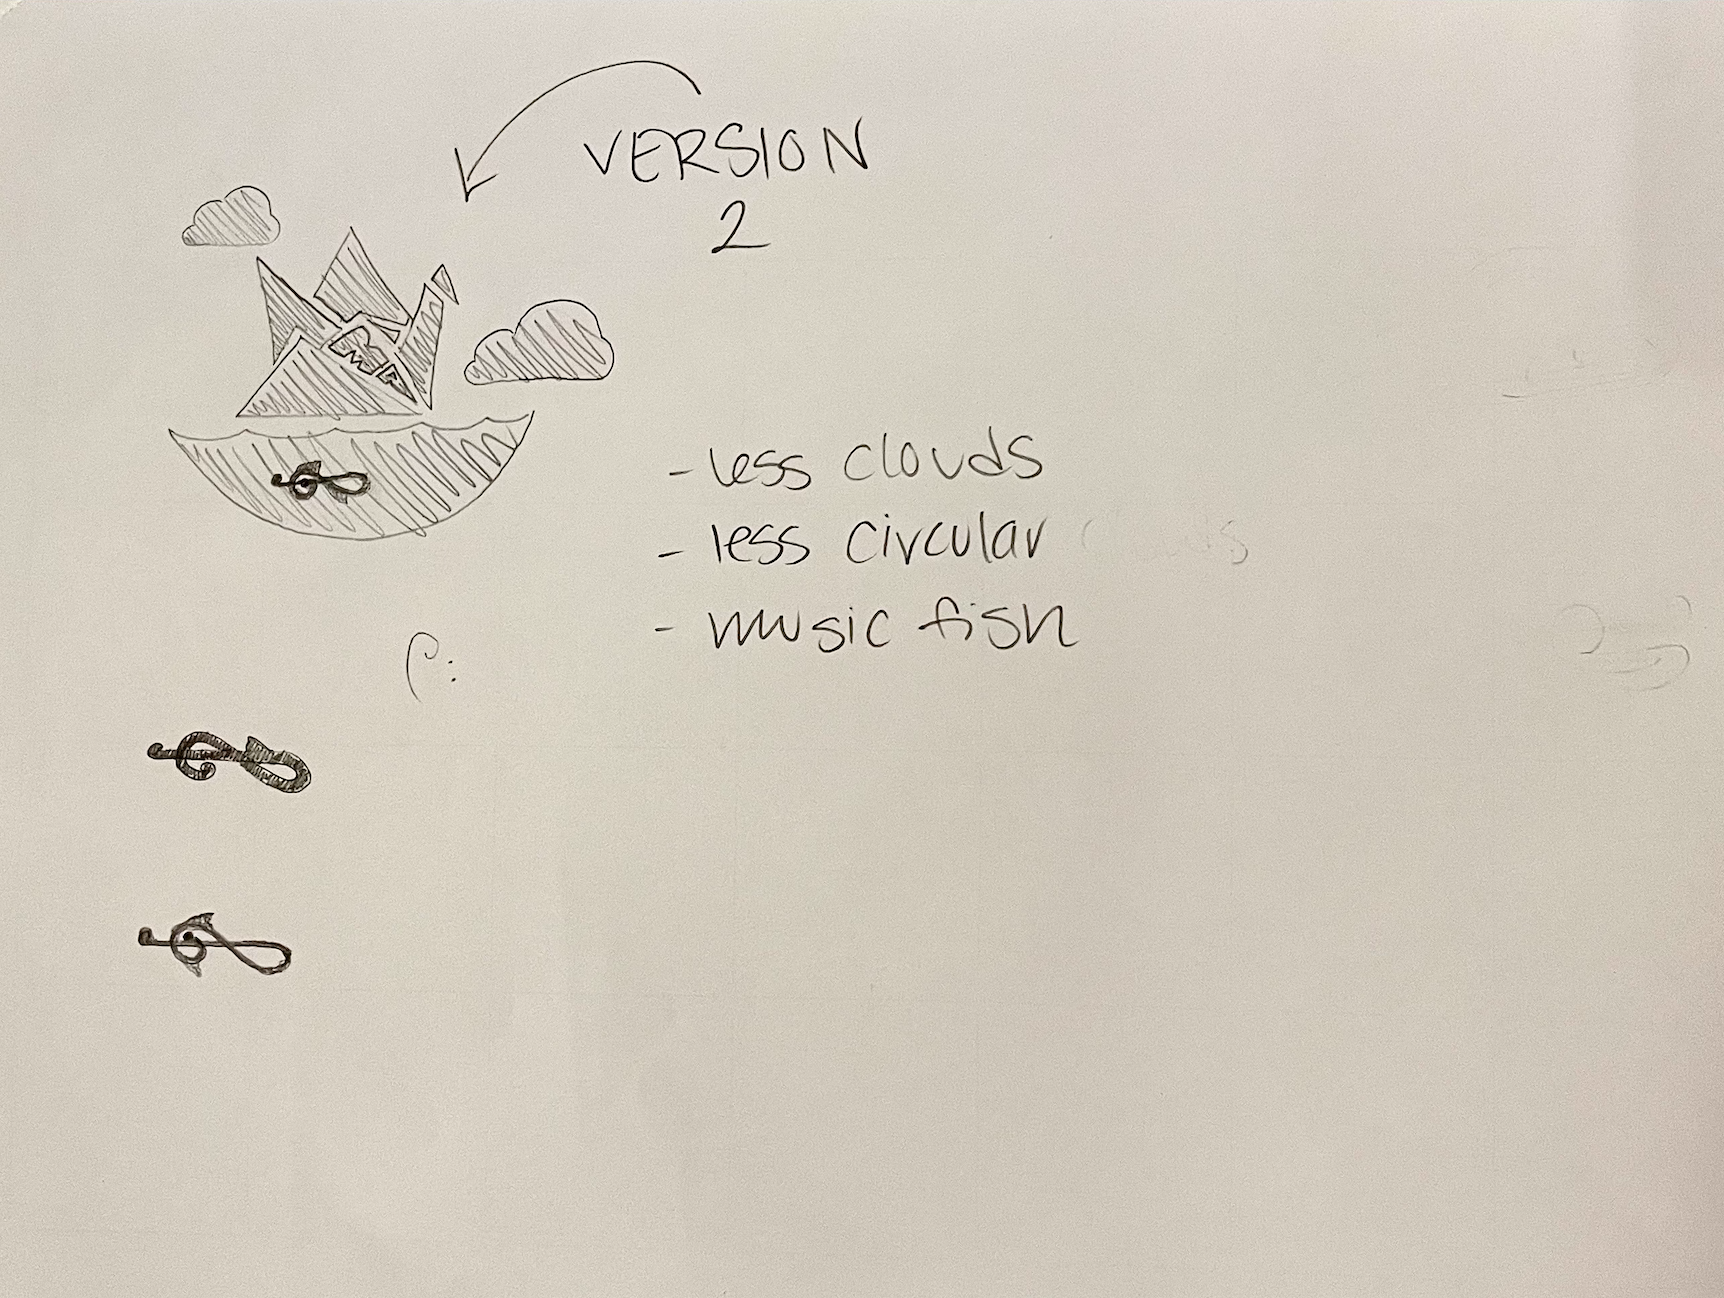 VERSION
2
- less clouds
- less circular
- music fish